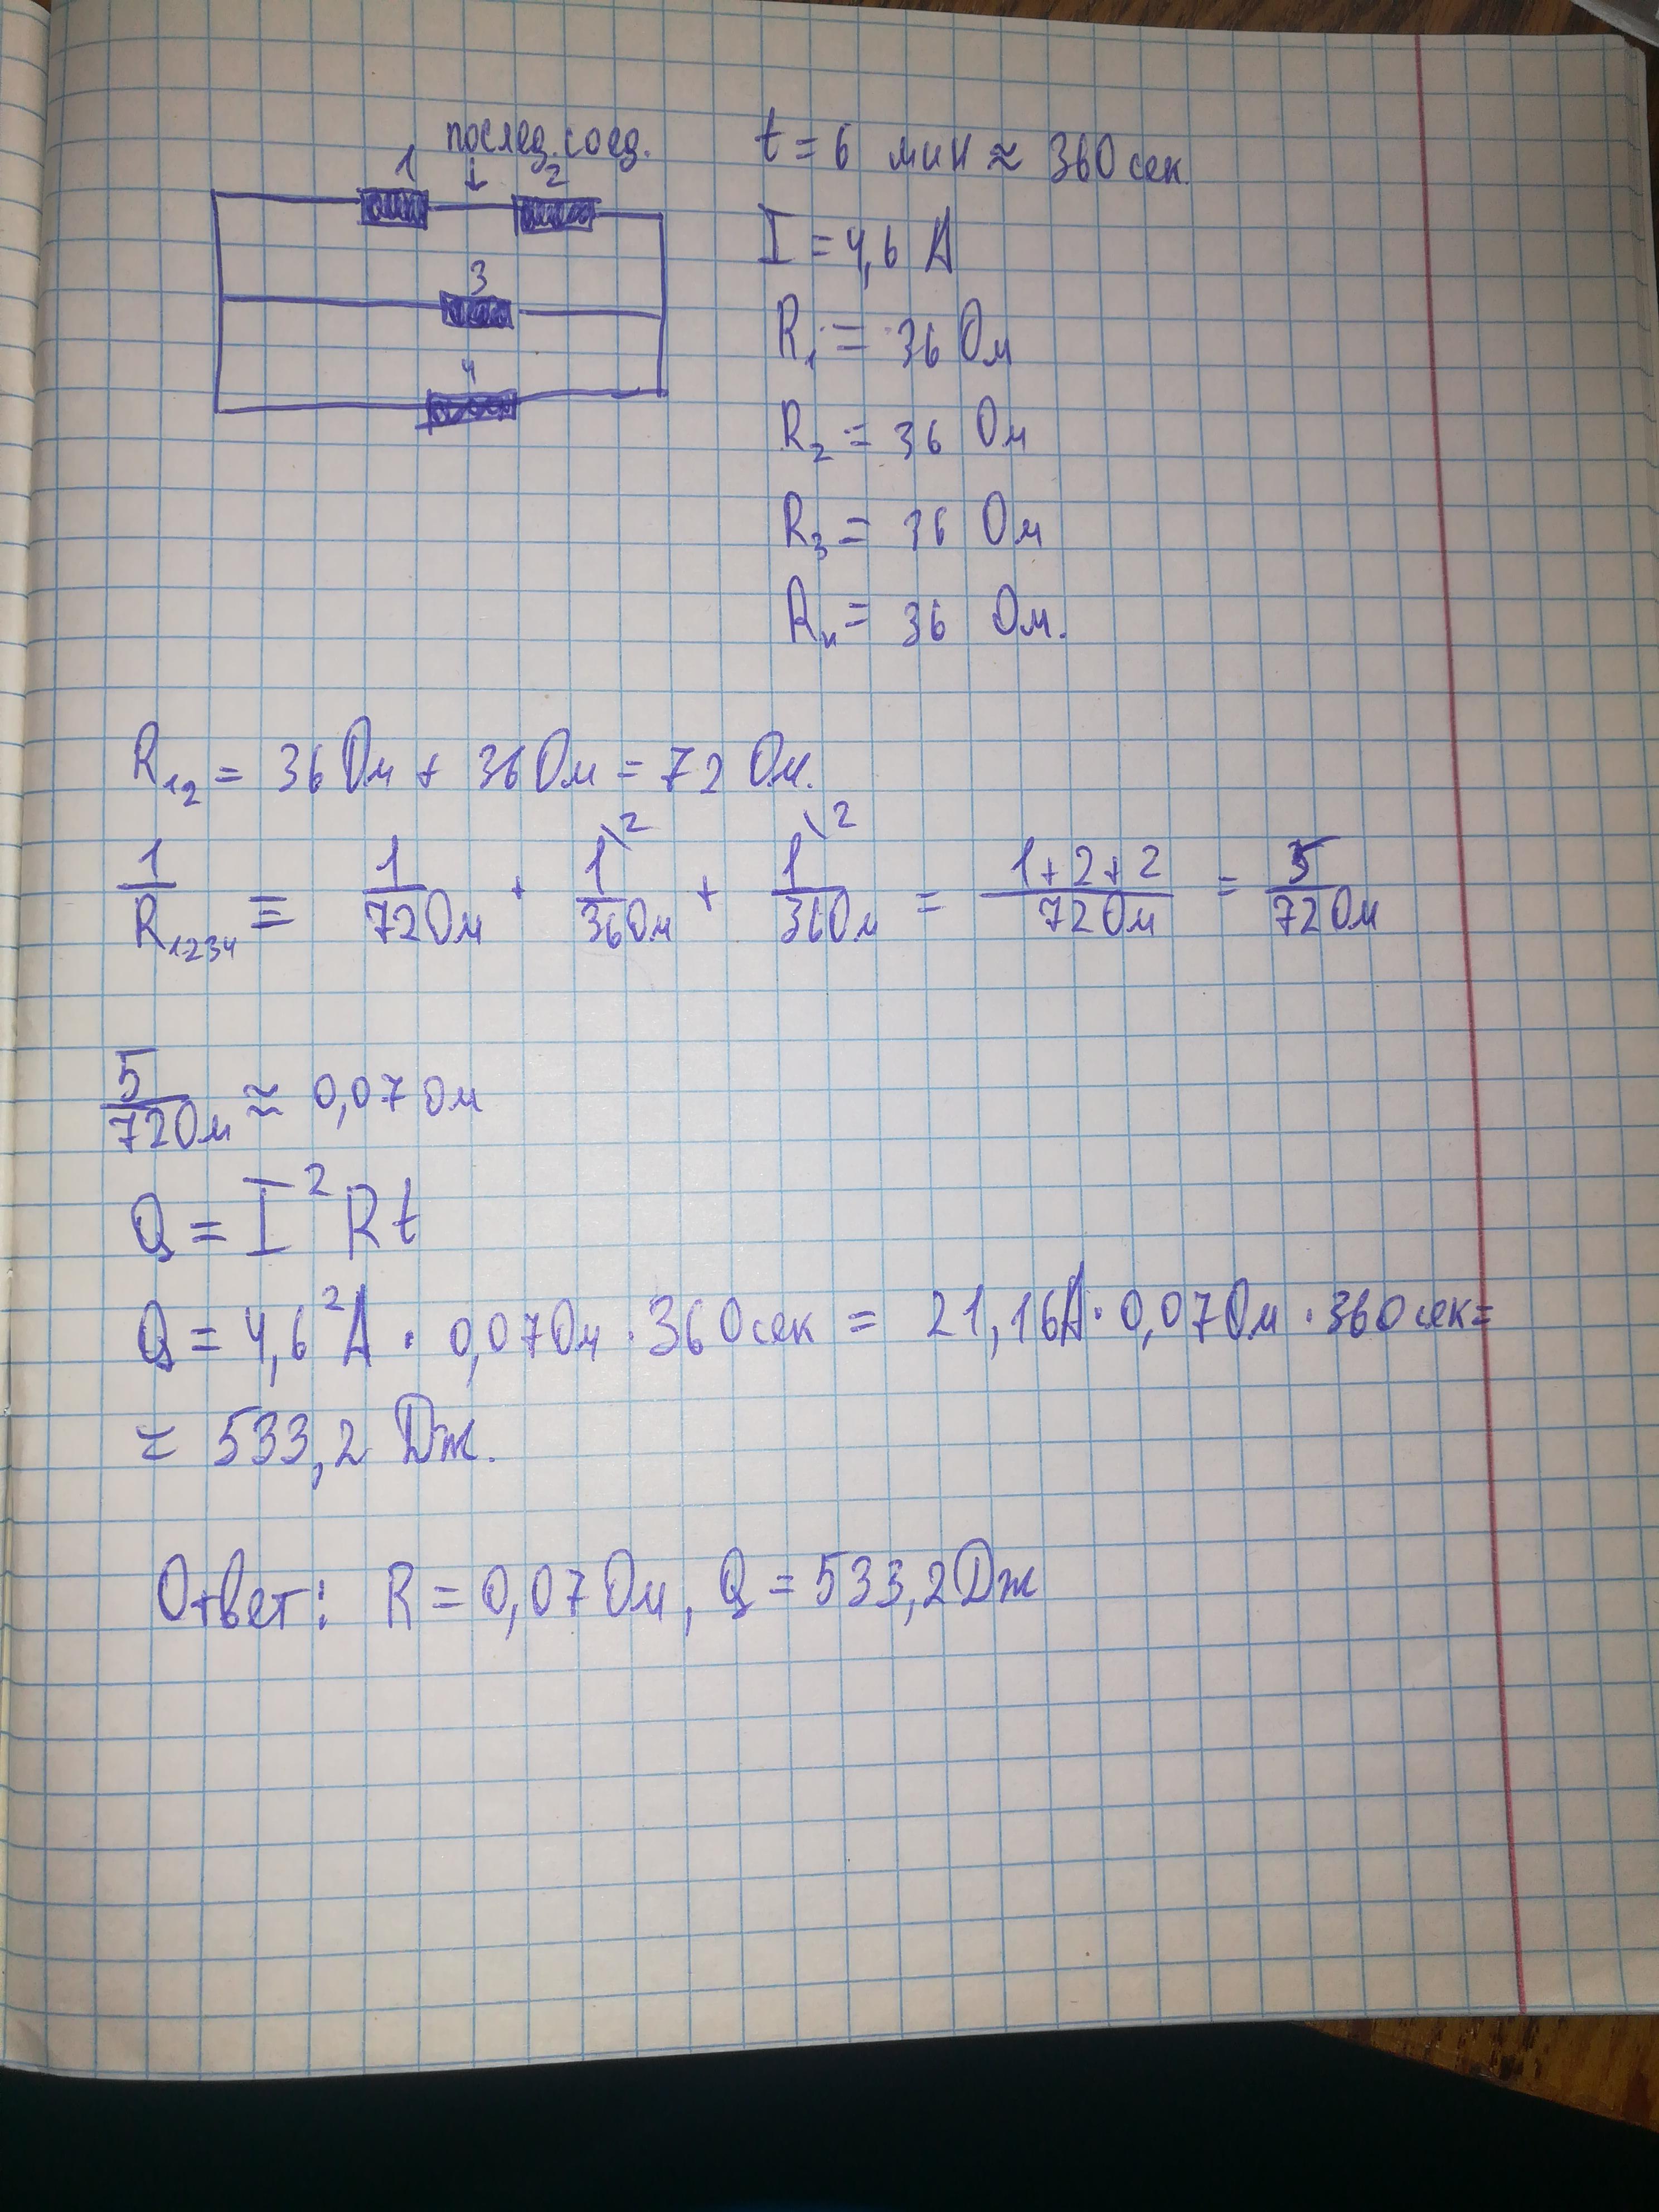 послед. соед.
1 ↓ 2
3
4
t = 6 мин ≈ 360 сек.
I = 4,6 А
R₁ = 36 Ом
R₂ = 36 Ом
R₃ = 36 Ом
R₄ = 36 Ом.
R₁₂ = 36 Ом + 36 Ом = 72 Ом.
1/R₁₂₃₄ = 1/72 Ом + 1\²/36 Ом + 1\²/36 Ом = 1+2+2/72 Ом = 5/72 Ом
5/72 Ом ≈ 0,07 Ом
Q = I² R t
Q = 4,6² А · 0,07 Ом · 360 сек = 21,16 А · 0,07 Ом · 360 сек =
= 533,2 Дж.
Ответ: R = 0,07 Ом, Q = 533,2 Дж